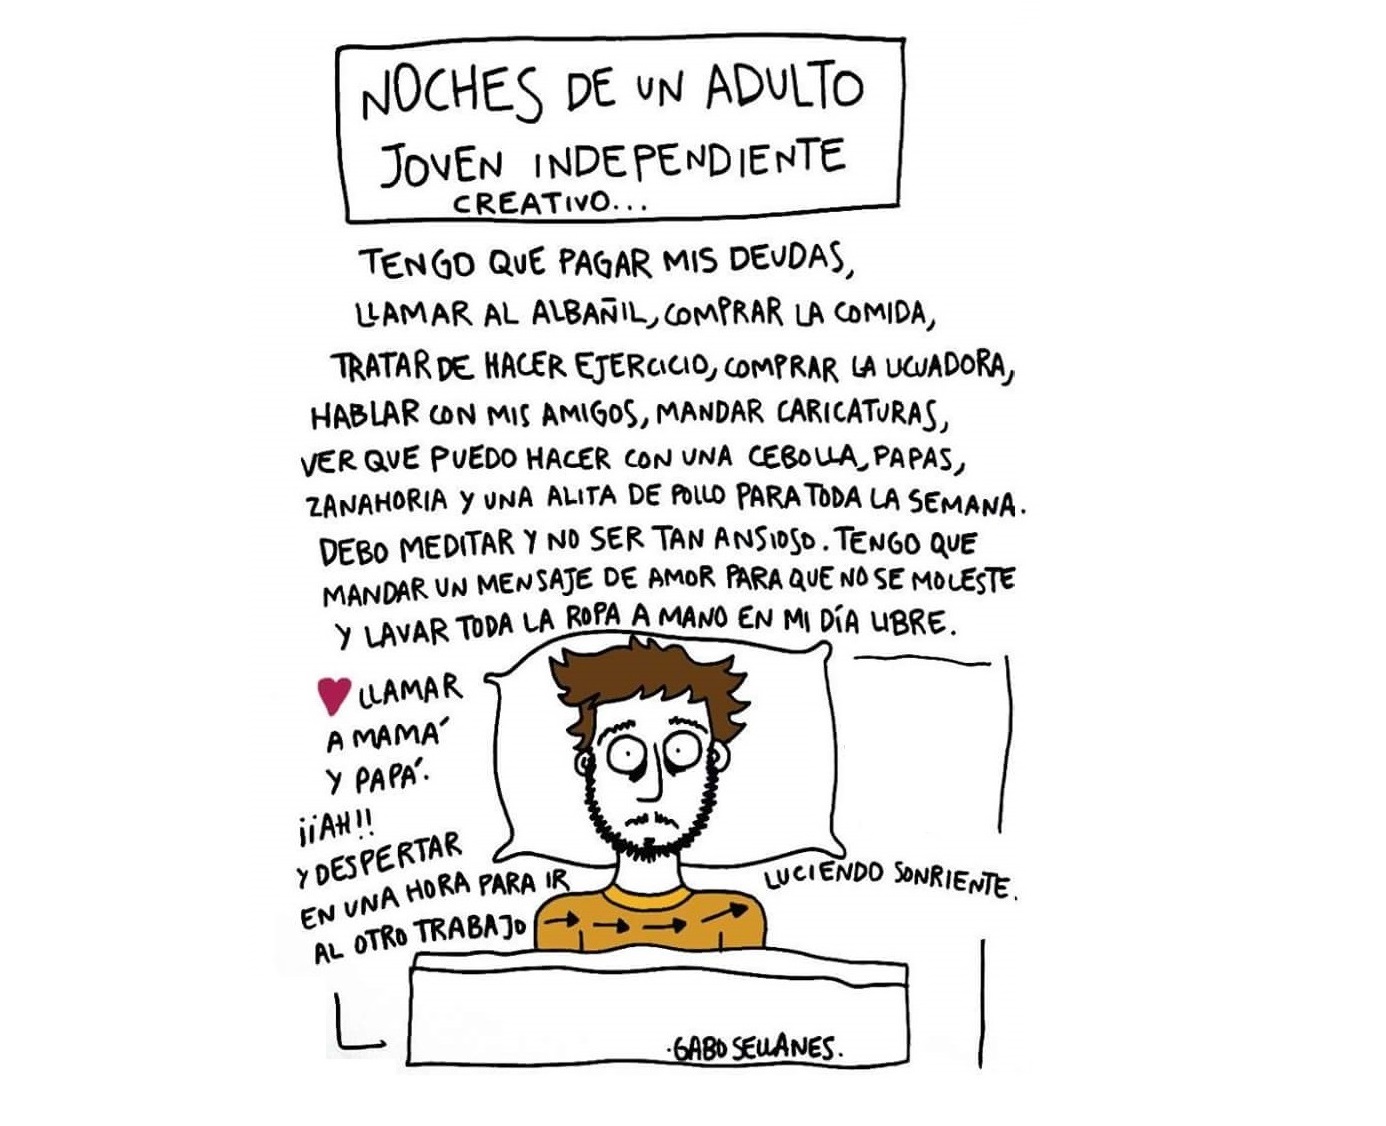 NOCHES DE UN ADULTO
JOVEN INDEPENDIENTE
CREATIVO...
TENGO QUE PAGAR MIS DEUDAS,
LLAMAR AL ALBAÑIL, COMPRAR LA COMIDA,
TRATAR DE HACER EJERCICIO, COMPRAR LA LICUADORA,
HABLAR CON MIS AMIGOS, MANDAR CARICATURAS,
VER QUE PUEDO HACER CON UNA CEBOLLA, PAPAS,
ZANAHORIA Y UNA ALITA DE POLLO PARA TODA LA SEMANA.
DEBO MEDITAR Y NO SER TAN ANSIOSO. TENGO QUE
MANDAR UN MENSAJE DE AMOR PARA QUE NO SE MOLESTE
Y LAVAR TODA LA ROPA A MANO EN MI DÍA LIBRE.
LLAMAR
A MAMÁ
Y PAPÁ.
¡¡AH!!
Y DESPERTAR
EN UNA HORA PARA IR
AL OTRO TRABAJO
LUCIENDO SONRIENTE.
.GABO SELLANES.